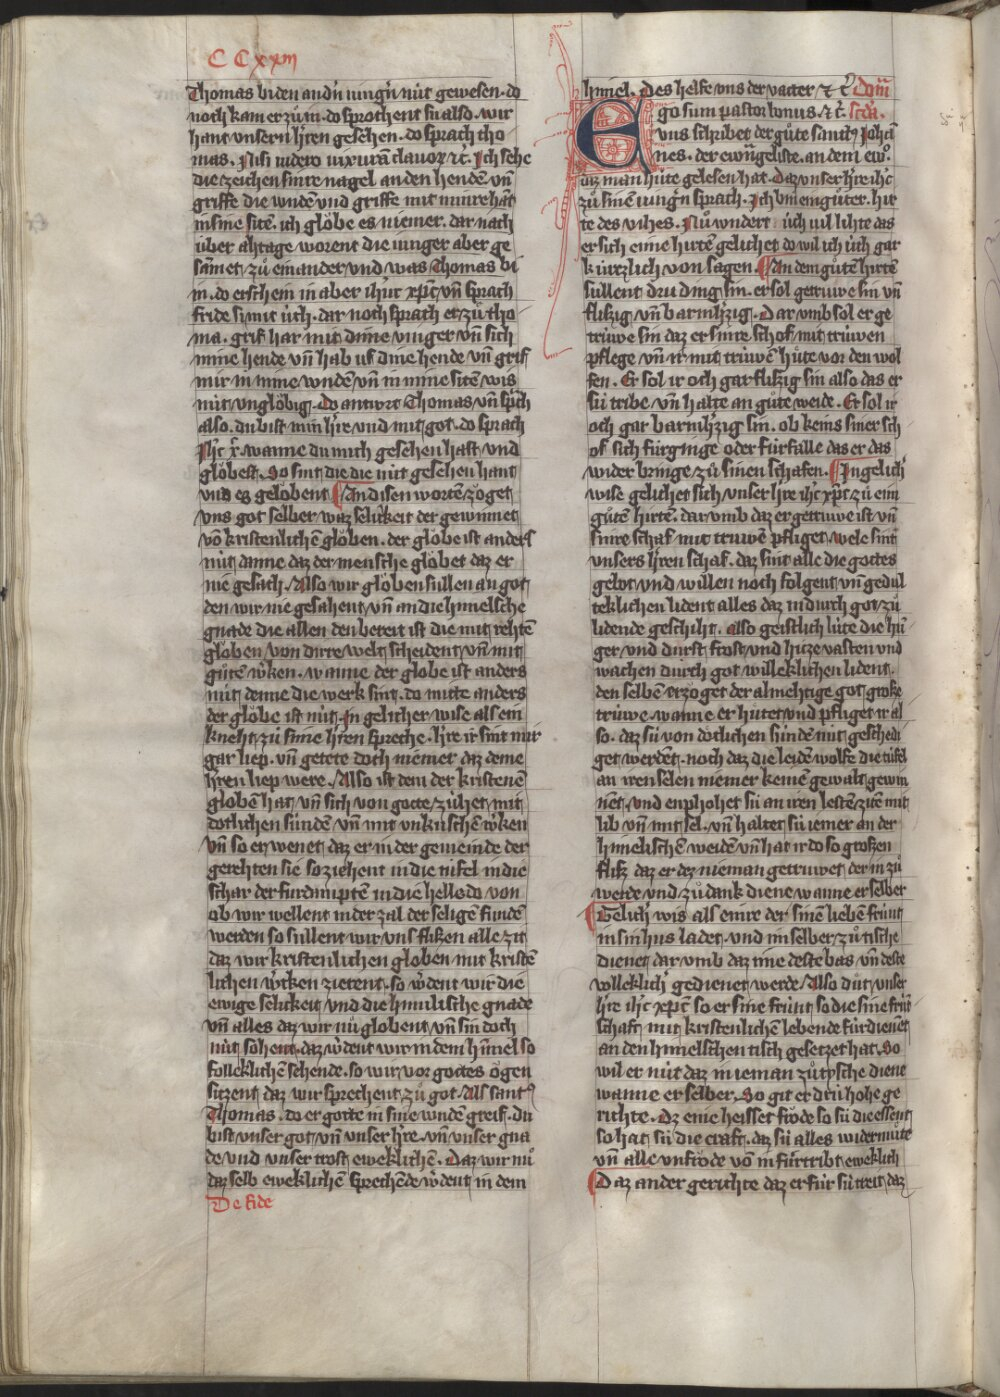 CCxxiii
Thomas bi den andn̄ iungn̄ nüt gewesen. do
noch kam er zü in. do sprochent sü also. wir
hant unsern hren gesehen. do sprach tho
mas. Nisi videro fixurā clavoꝝ ⁊c. Ich sehe
die zeichen sinre nagel an den henden. vn̄
griffe die wnden vnd griffe mit minre hāt
in sine sitē. ich glöbe es niemer. dar nach
über ahtage worent die iunger aber ge
sāmet zů einander vnd was Thomas bi
in. do erschein in aber ihūc xp̄c vn̄ sprach
fride si mit üch. dar noch sprach er zů tho
ma. grif har mit dime vinger vn̄ sich
mine hende vn̄ hab uf dine hende vn̄ grif
mir in mine wndē vn̄ in mine sitē wis
nüt vnglöbig. Do antwrt Thomas vn̄ sp̄ch
also. du bist min hre vnd min got. do sprach
Ih̄c x̄. wanne du mich gesehen hast vnd
glöbest. So sint die die nüt gesehen hant
vnd es gelöbent. An disen wortē zöget
vns got selber waz selikeit der gewinnet
vō kristenlichē glöben. der glöbe ist anders
nüt danne daz der mensche glöbet daz er
nie gesach. Also wir glöben süllen an got
den wir nie gesahent vn̄ an die himelsche
gnade die allen den bereit ist die mit rehtē
glöben von dirre welt scheident vn̄ mit
gůtē w̄ken. wanne der glöbe ist anders
nüt denne die werk sint. do mitte anders
der glöbe ist nüt. In gelicher wise als ein
kneht zů sime hren spreche. hre ir sint mir
gar liep. vn̄ getete doch niemer daz deme
hren liep were. Also ist dem der kristenē
glöbē hat vn̄ sich von gotte zühet mit
dotlichen sündē vn̄ mit vnküschē w̄ken
vn̄ so er wenet daz er in der gemeinde der
gerehten sie so ziehent in die tüfel in die
schar der fürdampten in die helle. do von
ob wir wellent in der zal der seligē fundē
werden so süllent wir vns flißen alle zit
daz wir kristenlichen glöben mit kristē
lichen w̄rken zierent. so w̄dent wir die
ewige selikeit vnd die himilische gnade
vn̄ alles daz wir nů glöbent vn̄ sin doch
nüt söhent. daz w̄dent wir in dem himel so
folleklichē sehende. so wir vor gottes ögen
sitzent. daz wir sprechent zů got. Als sant
Thomas. do er gotte in sine wndē greif. du
bist vnser got vn̄ vnser hre. vn̄ vnser gna
de vnd vnser trost eweklichē. Daz wir nů
daz selb eweklichē sprechēde w̄dent in dem
De fide
himel. des helfe vns der vatter ⁊ c̄ Dom̄
Ego sum pastor bonus. ⁊c̄. scda.
vns schribet der gůte sanctꝰ Johā
nes. der ewāgeliste. an dem ewā.
daz man hüte gelesen hat. Daz vnser hre ih̄c
zů sinen iungn̄ sprach. Ich bin ein gůter. hir
te des vihes. Nů wndert üch vil lihte das
er sich eime hirtē gelichet do wil ich üch gar
kürzlich von sagen. An dem gůtē hirtē
süllent drü ding sin. er sol getrüwe sin vn̄
flißig vn̄ barmh̄zig. Dar vmb sol er ge
trüwe sin daz er sinre schof mit trüwen
pflege vn̄ ir mit trüwē hůte vor den wol
fen. Er sol ir och gar flißig sin also das er
sü tribe vn̄ halte an gůte weide. Er sol ir
och gar barmh̄zig sin. ob keins siner sch
of sich fürginge oder fürfalle das er das
wider bringe zů sinen schafen. In gelich̄
wise gelichet sich vnser hre ih̄c xp̄c zů eim
gůtē hirten. dar vmb daz er getruwe ist vn̄
sinre schaf mit truwē pfliget. wele sint
vnsers hren schaf. daz sint alle die gottes
gebot vnd willen noch folgent vn̄ gedul
teklichen lident alles daz in durch got zů
lidende geschiht. Also geistlich lüte die hū
ger vnd durst frost vnd hitze vasten vnd
wachen durch got willeklichen lident.
den selbē erzöget der almehtige got große
trüwe. wanne er hütet vnd pfliget ir al
so. daz sü von dotlichen sündē nüt geschei
get werdēt. noch daz die leidē wolfe die tüfel
an iren selen niemer keinē gewalt gewin
nēt. vnd enpfohet sü an iren lestē zitē mit
lib vn̄ mit sel. vn̄ haltet sü iemer an der
himelischē weidē vn̄ hat ir do so großen
fliß daz er dez nieman getruwet der in zů
werde vnd zů dank diene wanne er selber
Gelich wis als einre der sinē liebē frünt
in sin hus ladet. vnd im selber zů tische
dienet dar vmb daz ime deste bas vn̄ deste
volleklich̄ gedienet werde. Also důt vnser
hre ih̄c xp̄c so er sine frünt so die sine frün
schaft mit kristenlichē lebende fürdienet
an den himelschen tisch gesetzet hat. So
wil er nüt daz in ieman zů tysche diene
wanne er selber. So git er drü hohe ge
richte. Dz eine heisset fröde so sü die essent
so hat sü die craft. daz sü alles widermůte
vn̄ alle vnfröde vō in fürtribt eweklich
Daz ander gerichte daz er für sü treit daz